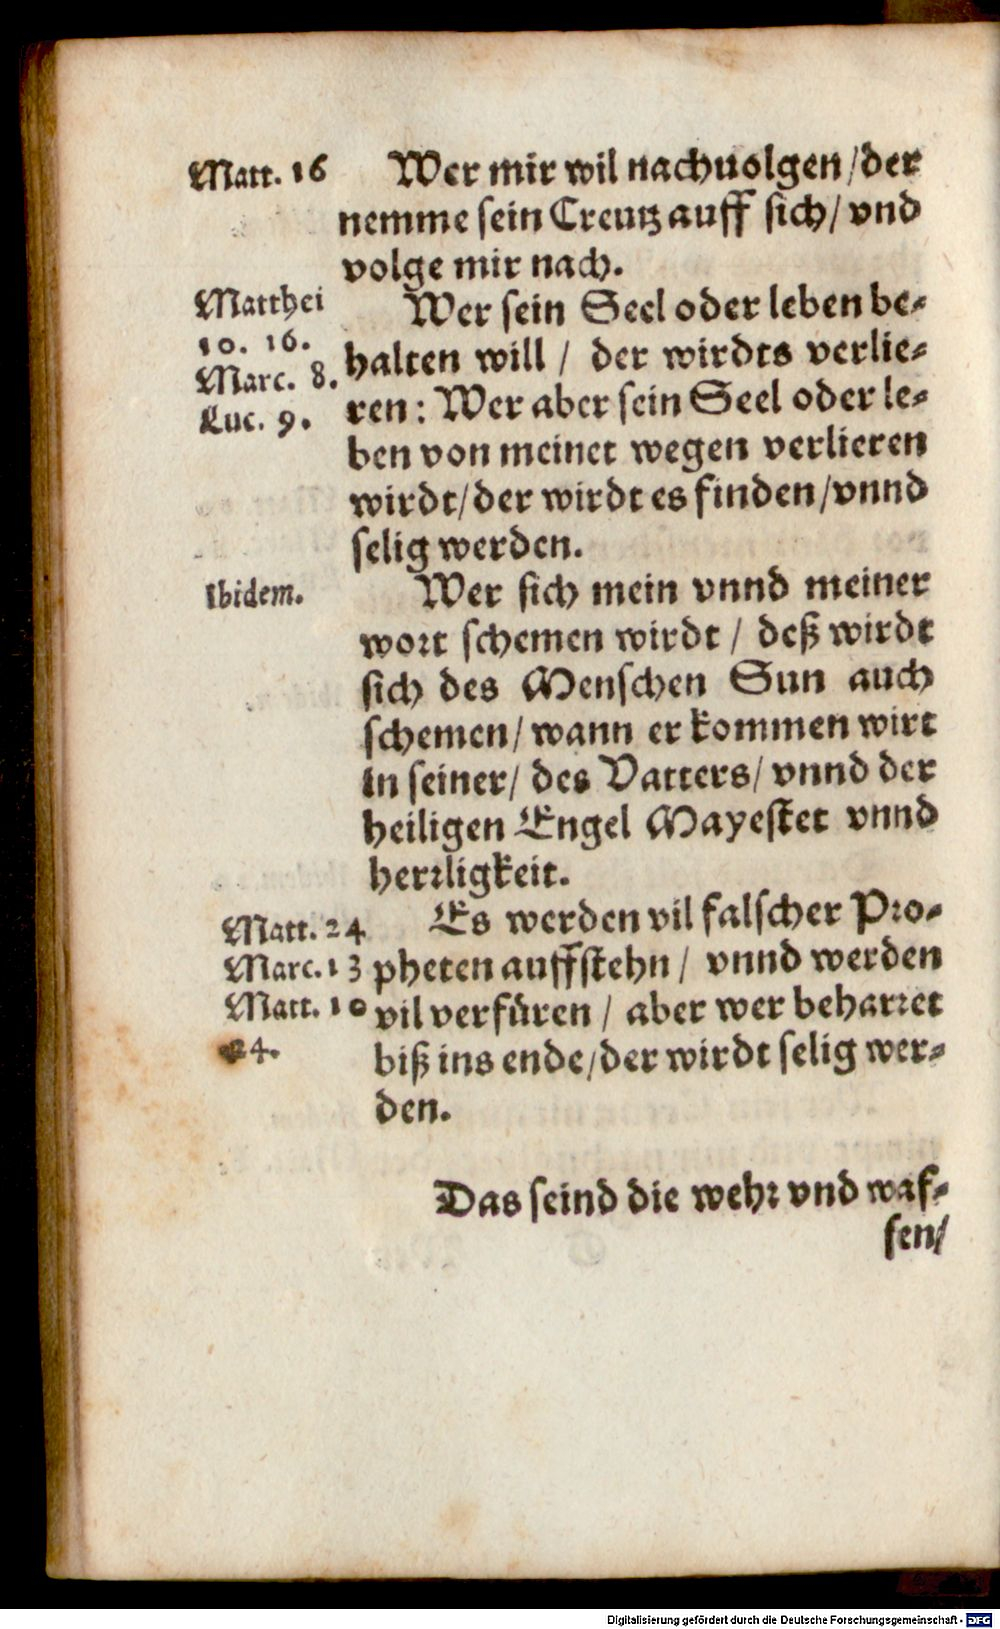 Matt. 16
Wer mir wil nachuolgen/der
nemme sein Creutz auff sich/ vnd
volge mir nach.
Matthei
10. 16.
Marc. 8.
Luc. 9.
Wer sein Seel oder leben be-
halten will / der wirdts verlie-
ren: Wer aber sein Seel oder le-
ben von meinet wegen verlieren
wirdt/der wirdt es finden/vnnd
selig werden.
Ibidem.
Wer sich mein vnnd meiner
wort schemen wirdt / deß wirdt
sich des Menschen Sun auch
schemen/ wann er kommen wirt
in seiner/ des Vatters/ vnnd der
heiligen Engel Mayestet vnnd
herrligkeit.
Matt. 24
Marc. 13
Matt. 10
24.
Es werden vil falscher Pro-
pheten auffstehn / vnnd werden
vil verfüren / aber wer beharret
biß ins ende/der wirdt selig wer-
den.
Das seind die wehr vnd waf-
fen/
Digitalisierung gefördert durch die Deutsche Forschungsgemeinschaft - DFG